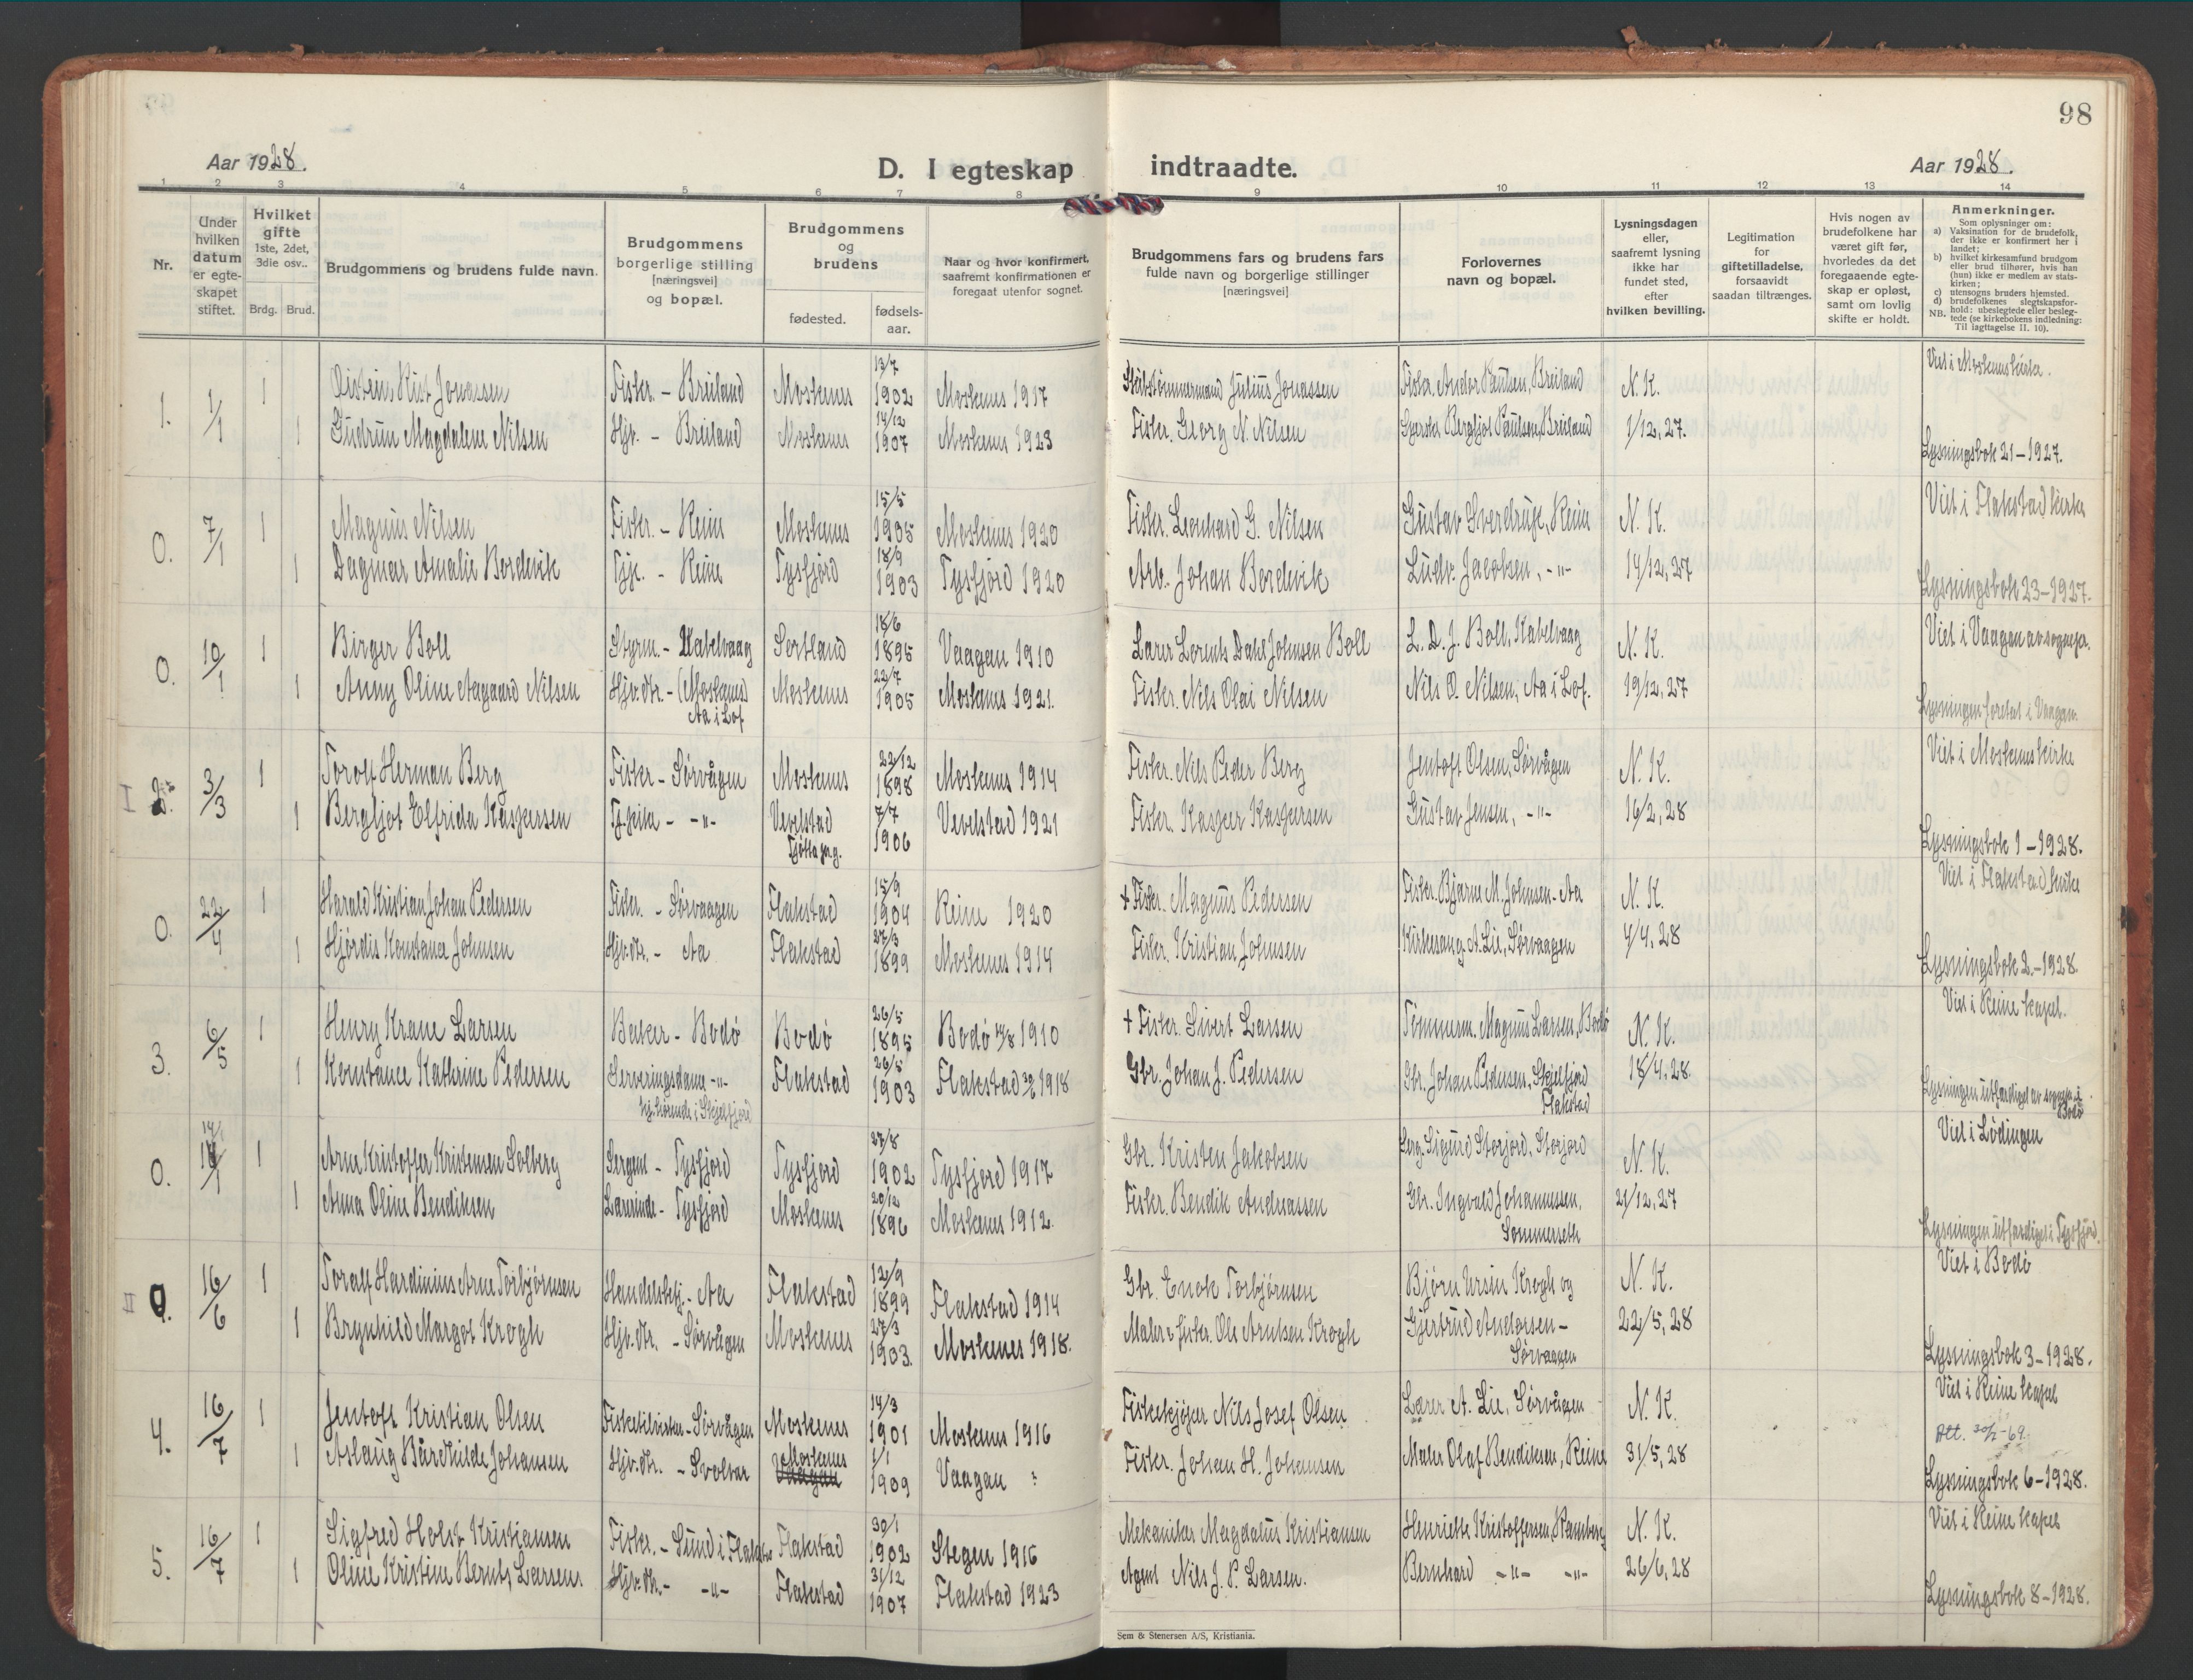 98
Aar 1928.
D. I egteskap indtraadte.
Aar 1928.
1 2 3 4 5 6 7 8 9 10 11 12 13 14
Nr.
Under hvilken datum er egteskapet stiftet.
Hvilket gifte 1ste, 2det, 3die osv.. Brdg. Brud.
Brudgommens og brudens fulde navn.
Brudgommens borgerlige stilling [næringsvei] og bopæl.
Brudgommens og brudens fødested. fødsels-aar.
Naar og hvor konfirmert, saafremt konfirmationen er foregaat utenfor sognet.
Brudgommens fars og brudens fars fulde navn og borgerlige stillinger [næringsvei]
Forlovernes navn og bopæl.
Lysningsdagen eller, saafremt lysning ikke har fundet sted, efter hvilken bevilling.
Legitimation for giftetilladelse, forsaavidt saadan tiltrænges.
Hvis nogen av brudefolkene har været gift før, hvorledes da det foregaaende egteskap er opløst, samt om lovlig skifte er holdt.
Anmerkninger.
Som oplysninger om:
a) Vaksination for de brudefolk, der ikke er konfirmert her i landet;
b) hvilket kirkesamfund brudgom eller brud tilhører, hvis han (hun) ikke er medlem av statskirken;
c) utensogns bruders hjemsted.
d) brudefolkenes slegtskapsforhold: ubeslegtede eller beslegtede (se kirkebokens indledning:
NB. Til iagttagelse II. 10).
13/7 Viet i Moskenes kirke.
1. 1/1 1 Øistein Rist Jonassen Fisker. - Breiland Moskenes 1902 Moskenes 1917 Skibstømmermand Julius Jonassen Fisker. Andor Paulsen, Breiland N. K.
14/12
1 Gudrun Magdalene Nilsen Hjv. - Breiland Moskenes 1907 Moskenes 1923 Fisker. Georg N. Nilsen Bergljot Paulsen, Breiland 1/12, 27.
Lysningsbok 21-1927.
15/5 Viet i Flakstad kirke
0. 7/1 1 Magnus Nilsen Fisker. - Reine Moskenes 1905 Moskenes 1920 Fisker. Leonhard G. Nilsen Gustav Sverdrup, Reine N. K.
18/9
1 Dagmar Amalie Bordevik Tjp. - Reine Tysfjord 1903 Tysfjord 1920 Arb. Johan Bordevik Ludv. Jacobsen, -"- 14/12, 27
Lysningsbok 23-1927.
18/6 Viet i Vaagan av sognepr.
0. 10/1 1 Birger Boll Styrm. - Kabelvaag Sortland 1895 Vaagan 1910 Lærer Lorents Dahl Johnsen Boll L. D. J. Boll, Kabelvaag N. K.
22/7
1 Anny Oline Aagaard Nilsen Hjv. dtr. - (Moskenes) Moskenes 1905 Moskenes 1921. Fisker. Nils Olai Nilsen Nils O. Nilsen, Aa i Lof. 19/12, 27
Aa i Lof. Lysningen foretat i Vaagan.
22/12 Viet i Moskenes kirke
I 2. 3/3 1 Torolf Herman Berg Fisker - Sørvågen Moskenes 1898 Moskenes 1914 Fisker. Nils Peder Berg Jentoft Olsen, Sørvågen N. K.
7/7
1 Bergljot Elfrida Kaspersen -"- Vevelstad 1906 Vevelstad 1921 Fisker. Kasper Kaspersen Gustav Jensen, -"- 16/2, 28
Tjøtta prg. Lysningsbok 1-1928.
15/9 Viet i Flakstad kirke
0. 22/4 1 Harald Kristian Johan Pedersen Fisker. - Sørvaagen Flakstad 1904 Reine 1920 + Fisker. Magnus Pedersen Fisker Bjarne M. Johnsen - Aa N. K.
27/3
1 Hjørdis Konstanse Johnsen Hjv. dtr. - Aa Flakstad 1899 Moskenes 1914 Fisker. Kristian Johnsen Kirkesang. A. Lie, Sørvaagen 4/4, 28
Lysningsbok 2.-1928.
26/5 Viet i Reine kapel.
3. 6/5 1 Henry Krane Larsen Baker - Bodø Bodø 1895 Bodø 1910 + Fisker. Sivert Larsen Tømmerm. Magnus Larsen, Bodø N. K.
26/8
1 Konstance Kathrine Pedersen Serveringsdame -"- Flakstad 1903 Flakstad 1918 Gbr. Johan J. Pedersen Gbr. Johan Pedersen, Skjelfjord 18/4, 28.
hj.hørende i Skjelfjord Flakstad Lysningen utfærdiget av sognepr. i Bodø
27/8 Viet i Lødingen
0. 14/1 1 Arne Kristoffer Kristensen Solberg Sergent - Tysfjord Tysfjord 1902 Tysfjord 1917 Gbr. Kristen Jakobsen Serg. Sigurd Storjord, Storjord N. K.
20/12
1 Anna Oline Bendiksen Lærerinde - Tysfjord Moskenes 1896 Moskenes 1912. Fisker. Bendik Andreassen Gbr. Ingvald Johannessen, 21/12, 27
Sommerseth Lysningen utfærdiget i Tysfjord.
12/9 Viet i Bodø
II 0. 16/6 1 Toralf Hardinius Arne Torbjørnsen Handelsbtj. - Aa Flakstad 1899 Flakstad 1914 Gbr. Enok Torbjørnsen Bjørn Ursin Krogh og N. K.
27/3
1 Brynhild Margot Krogh Hjv. dtr. - Sørvågen Moskenes 1903. Moskenes 1918. Maler & fisker. Ole Arntsen Krogh Gjertrud Andersen - 22/5, 28
Sørvaagen Lysningsbok 3-1928.
14/3 Viet i Reine kapel
4. 16/7 1 Jentoft Kristian Olsen Fisketilvirker - Sørvågen Moskenes 1901 Moskenes 1916 Fiskekjøper Nils Josef Olsen Lærer A. Lie, Sørvågen N. K.
Att. -69.
1/1
1 Aslaug Bårdhilde Johansen Hjv. dtr. - Svolvær Moskenes Vaagan 1909 Vaagan : Fisker. Johan H. Johansen Maler Olaf Bendiksen, Reine 31/5, 28
Lysningsbok 6-1928.
30/1 Viet i Reine kapel
5. 16/7 1 Sigfred Holst Kristiansen Fisker. - Sund i Flakstad Flakstad 1902 Steigen 1916 Mekaniker Magdalus Kristiansen Henriette Kristoffersen, Ramberg N. K.
31/12
1 Oline Kristine Bernts Larsen. Hjv. dtr. - -"- Flakstad 1907 Flakstad 1923 Agent Nils J. P. Larsen. Bernhard -"- -"- 26/6, 28
Lysningsbok 8-1928.
Sem & Stenersen A/S, Kristiania.